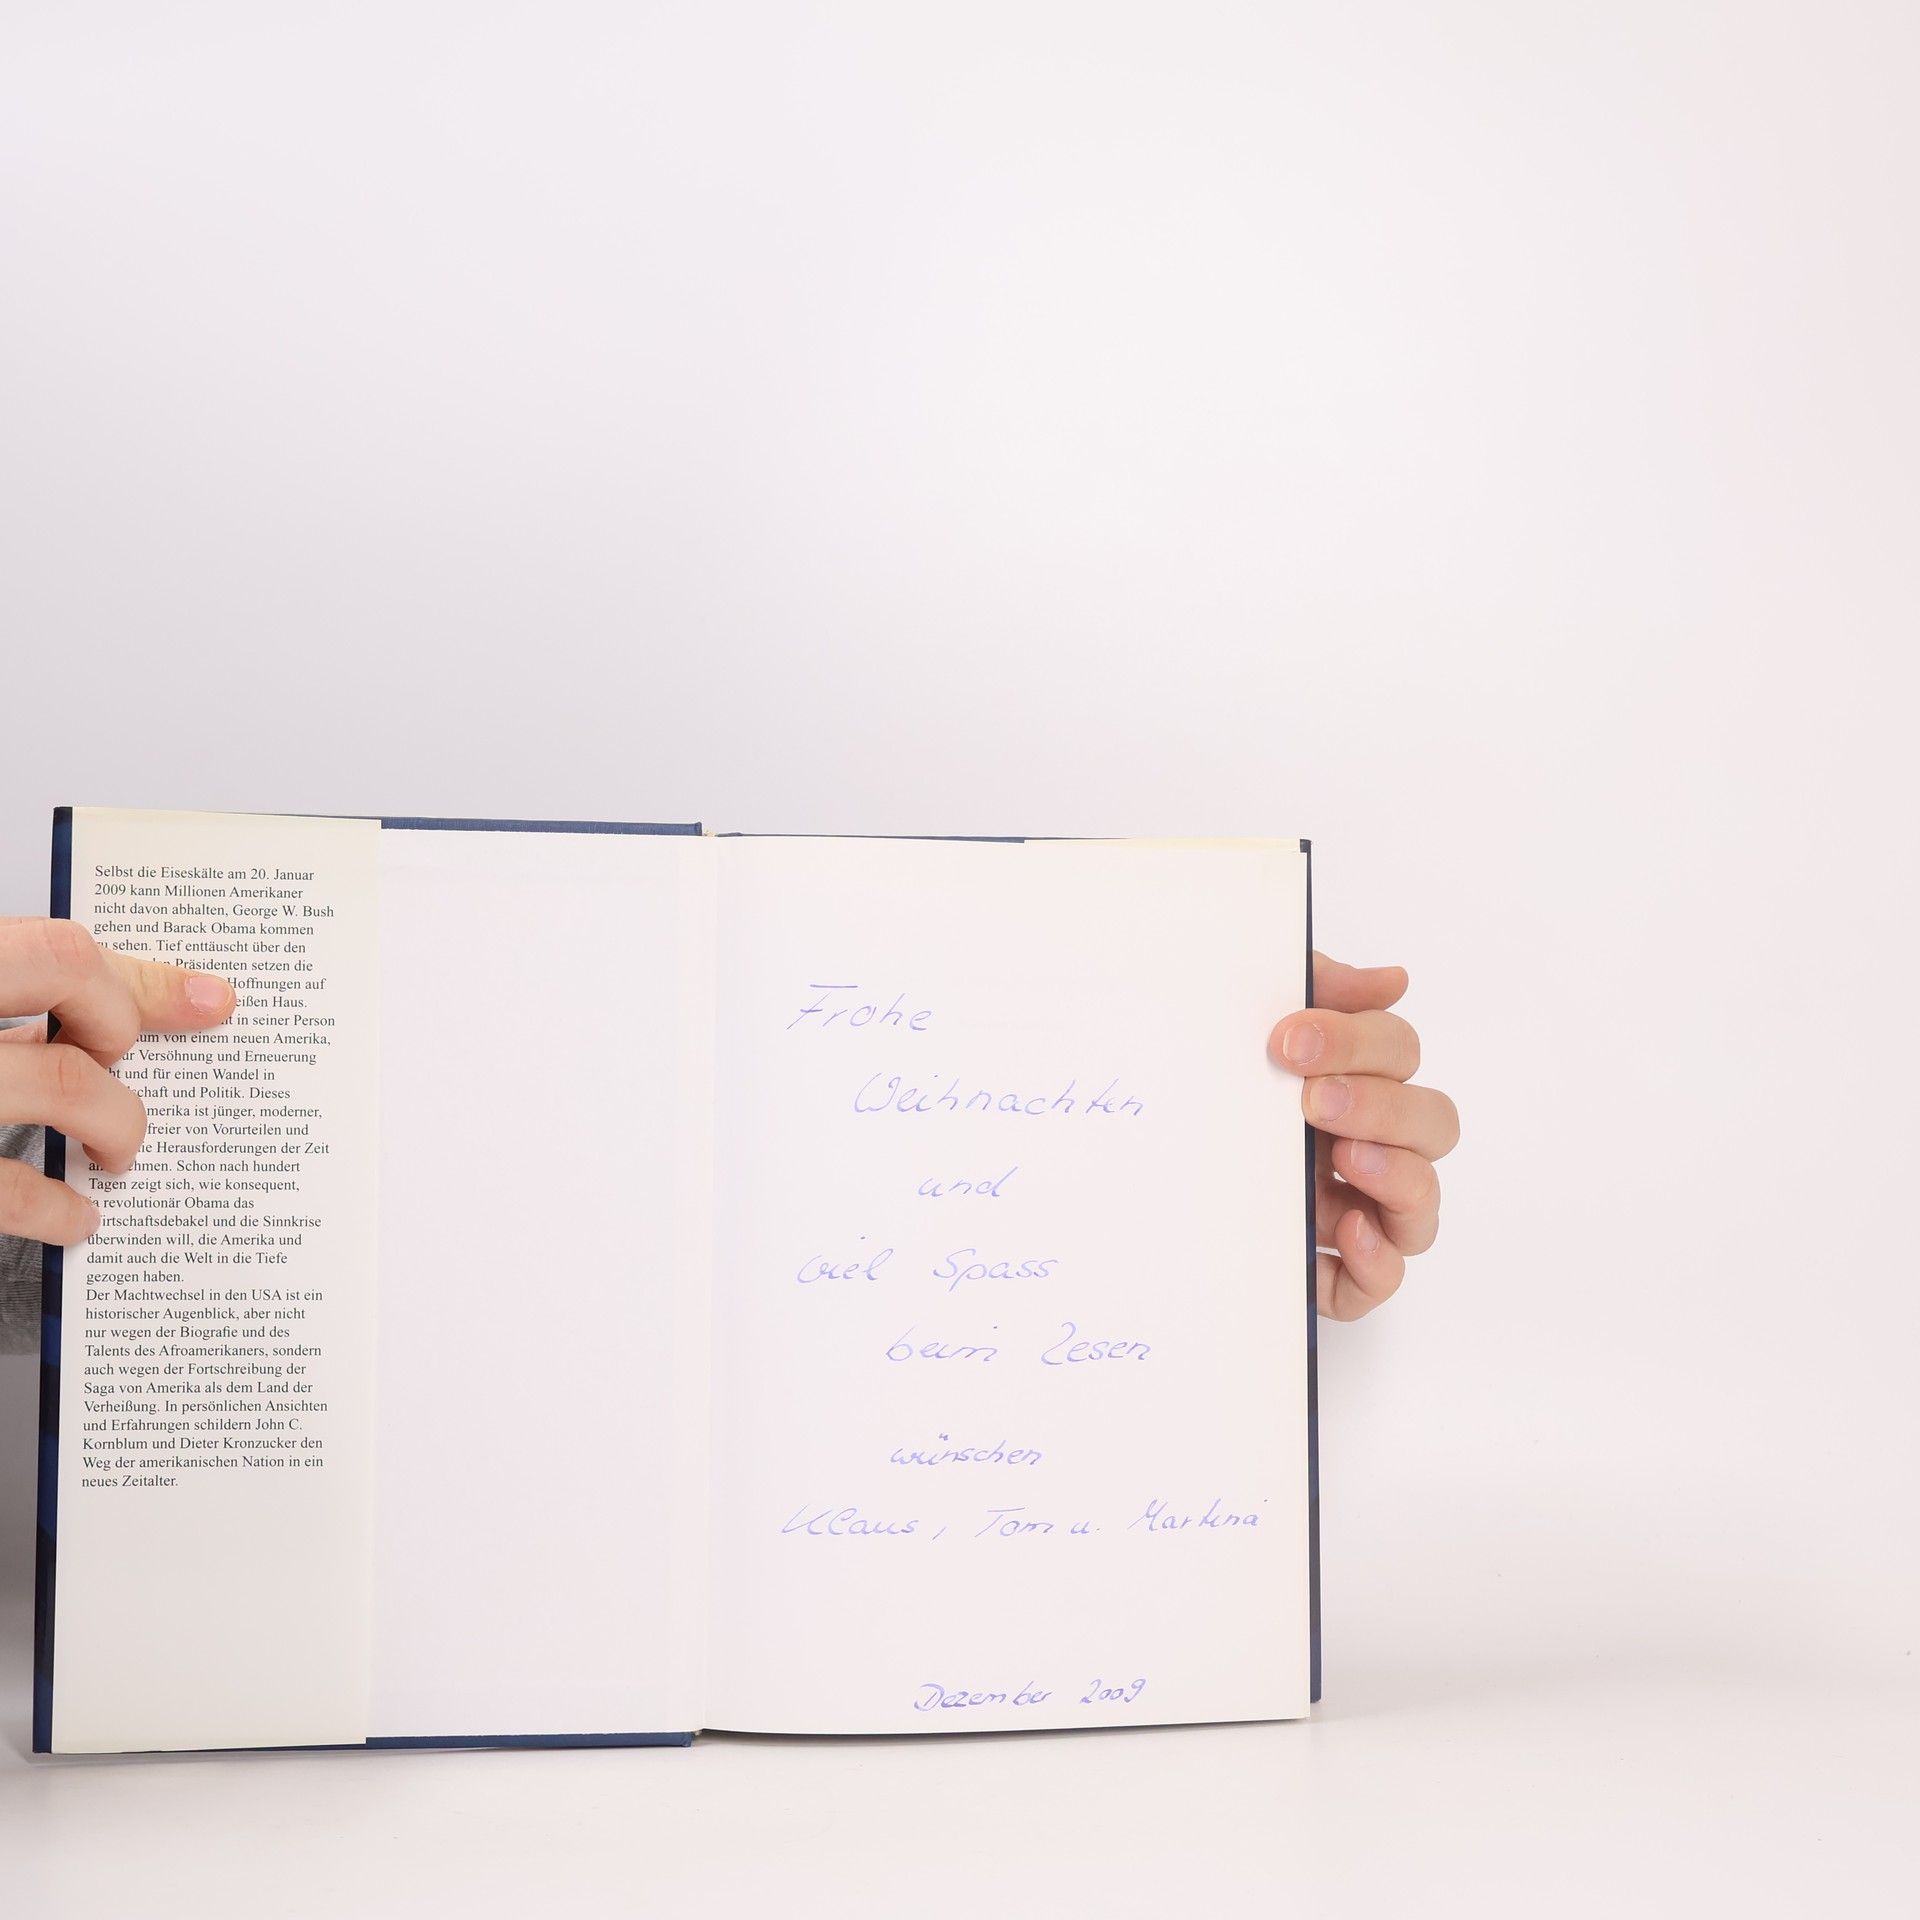 Selbst die Eiseskälte am 20. Januar
2009 kann Millionen Amerikaner
nicht davon abhalten, George W. Bush
gehen und Barack Obama kommen
sehen. Tief enttäuscht über den
Präsidenten setzen die
Hoffnungen auf
Haus.
in seiner Person
von einem neuen Amerika,
Versöhnung und Erneuerung
und für einen Wandel in
und Politik. Dieses
ist jünger, moderner,
freier von Vorurteilen und
Herausforderungen der Zeit
Schon nach hundert
Tagen zeigt sich, wie konsequent,
revolutionär Obama das
Wirtschaftsdebakel und die Sinnkrise
überwinden will, die Amerika und
damit auch die Welt in die Tiefe
gezogen haben.
Der Machtwechsel in den USA ist ein
historischer Augenblick, aber nicht
nur wegen der Biografie und des
Talents des Afroamerikaners, sondern
auch wegen der Fortschreibung der
Saga von Amerika als dem Land der
Verheißung. In persönlichen Ansichten
und Erfahrungen schildern John C.
Kornblum und Dieter Kronzucker den
Weg der amerikanischen Nation in ein
neues Zeitalter.
Frohe
Weihnachten
und
viel Spass
beim Lesen
wünschen
Klaus, Tom u. Martina
Dezember 2009